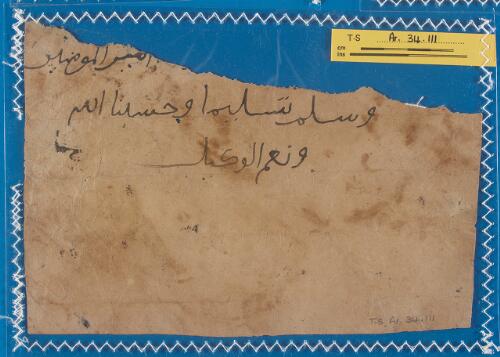 T-S Ar. 34.111
cm
ins
امير المومنين
وسلم تسليما وحسبنا الله
ونعم الوكيل
T-S Ar. 34.111